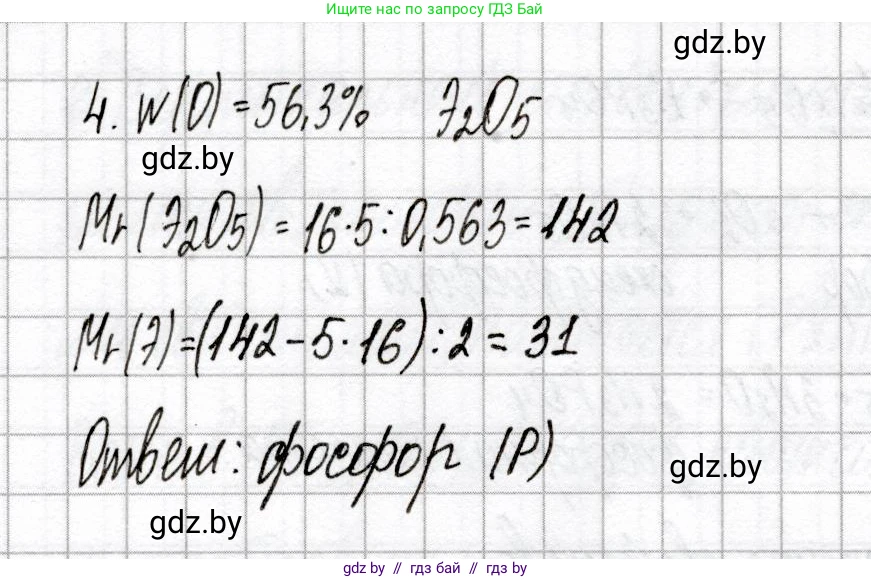 Ищите нас по запросу ГДЗ Бай
gdz.by
4. W(O) = 56,3% Э₂O₅
gdz.by
Mr(Э₂O₅) = 16·5:0,563 = 142
Mr(Э) = (142 - 5·16):2 = 31
Ответ: фосфор (P)
gdz.by
gdz.by
gdz.by // гдз бай // гдз by